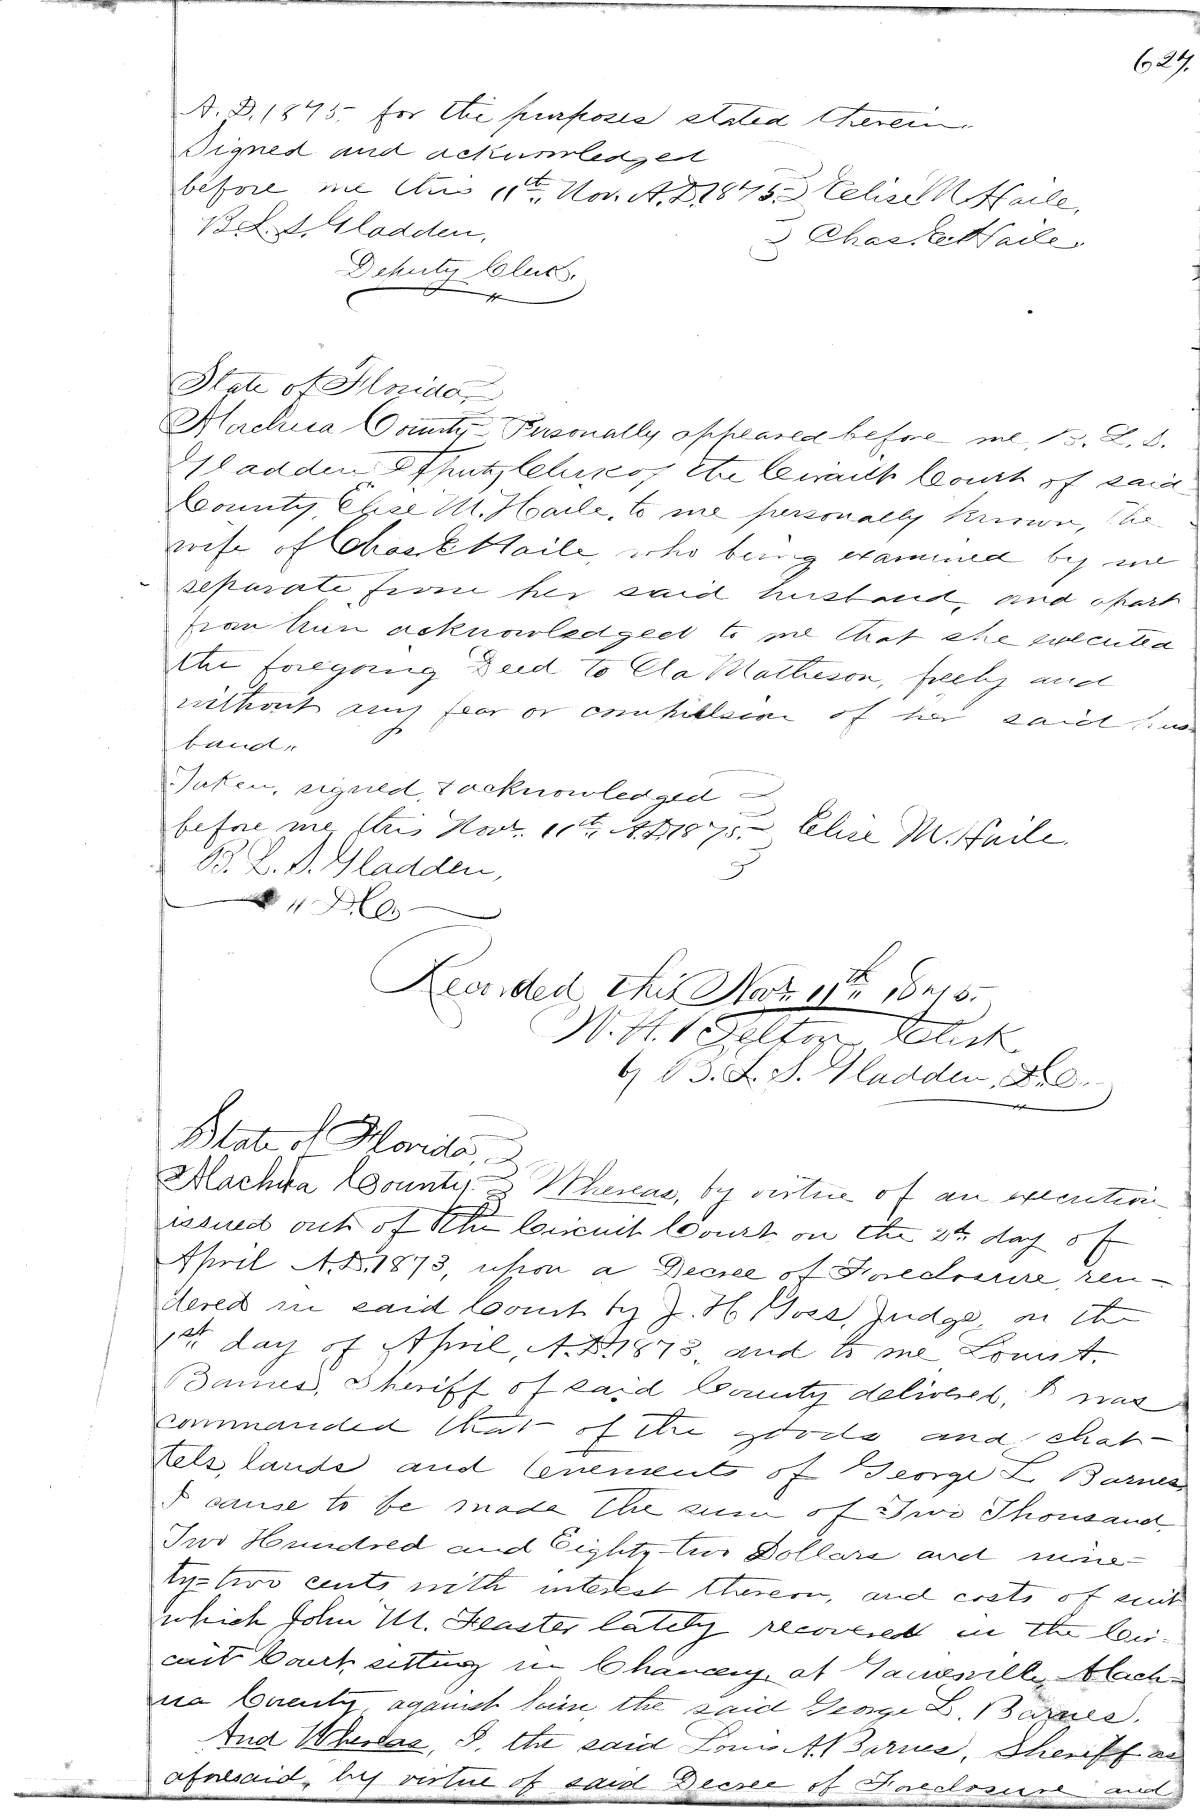 627.
A. D. 1875. for the purposes stated therein.
Signed and acknowledged
before me this 11th Nov. A.D. 1875. Elise M. Haile.
B. L. S. Gladden, Chas. E. Haile.
Deputy Clerk.
State of Florida,
Alachua County Personally appeared before me, B. L. S.
Gladden Deputy Clerk of the Circuit Court of said
County, Elise M. Haile, to me personally known, the
wife of Chas E Haile, who being examined by me
separate from her said husband, and apart
from him acknowledged to me that she executed
the foregoing Deed to Matheson, freely and
without any fear or compulsion of her said hus
band.
Taken, signed, & acknowledged
before me this Novr. 11th A.D. 1875. Elise M. Haile.
B. L. S. Gladden,
" D.C.
Recorded this Novr. 11th 1875.
W. H. Belton Clerk
by B. L. S. Gladden, D.C.
State of Florida,
Alachua County. Whereas, by virtue of an execution
issued out of the Circuit Court on the day of
April A.D. 1873, upon a Decree of Foreclosure, ren-
dered in said Court by J. H Goss, Judge, on the
1st day of April, A.D. 1873, and to me Louis A.
Barnes, Sheriff of said County delivered, I was
commanded that of the goods and chat-
tels, lands and tenements of George L Barnes,
I cause to be made the sum of Two Thousand,
Two Hundred and Eighty-two Dollars and nine-
ty=two cents, with interest thereon, and costs of suit
which John M. Feaster lately recovered in the Cir-
cuit Court, sitting in Chancery, at Gainesville, Alach-
ua County, against him, the said George L. Barnes.
And Whereas, I, the said Louis A. Barnes, Sheriff as
aforesaid, by virtue of said Decree of Foreclosure and